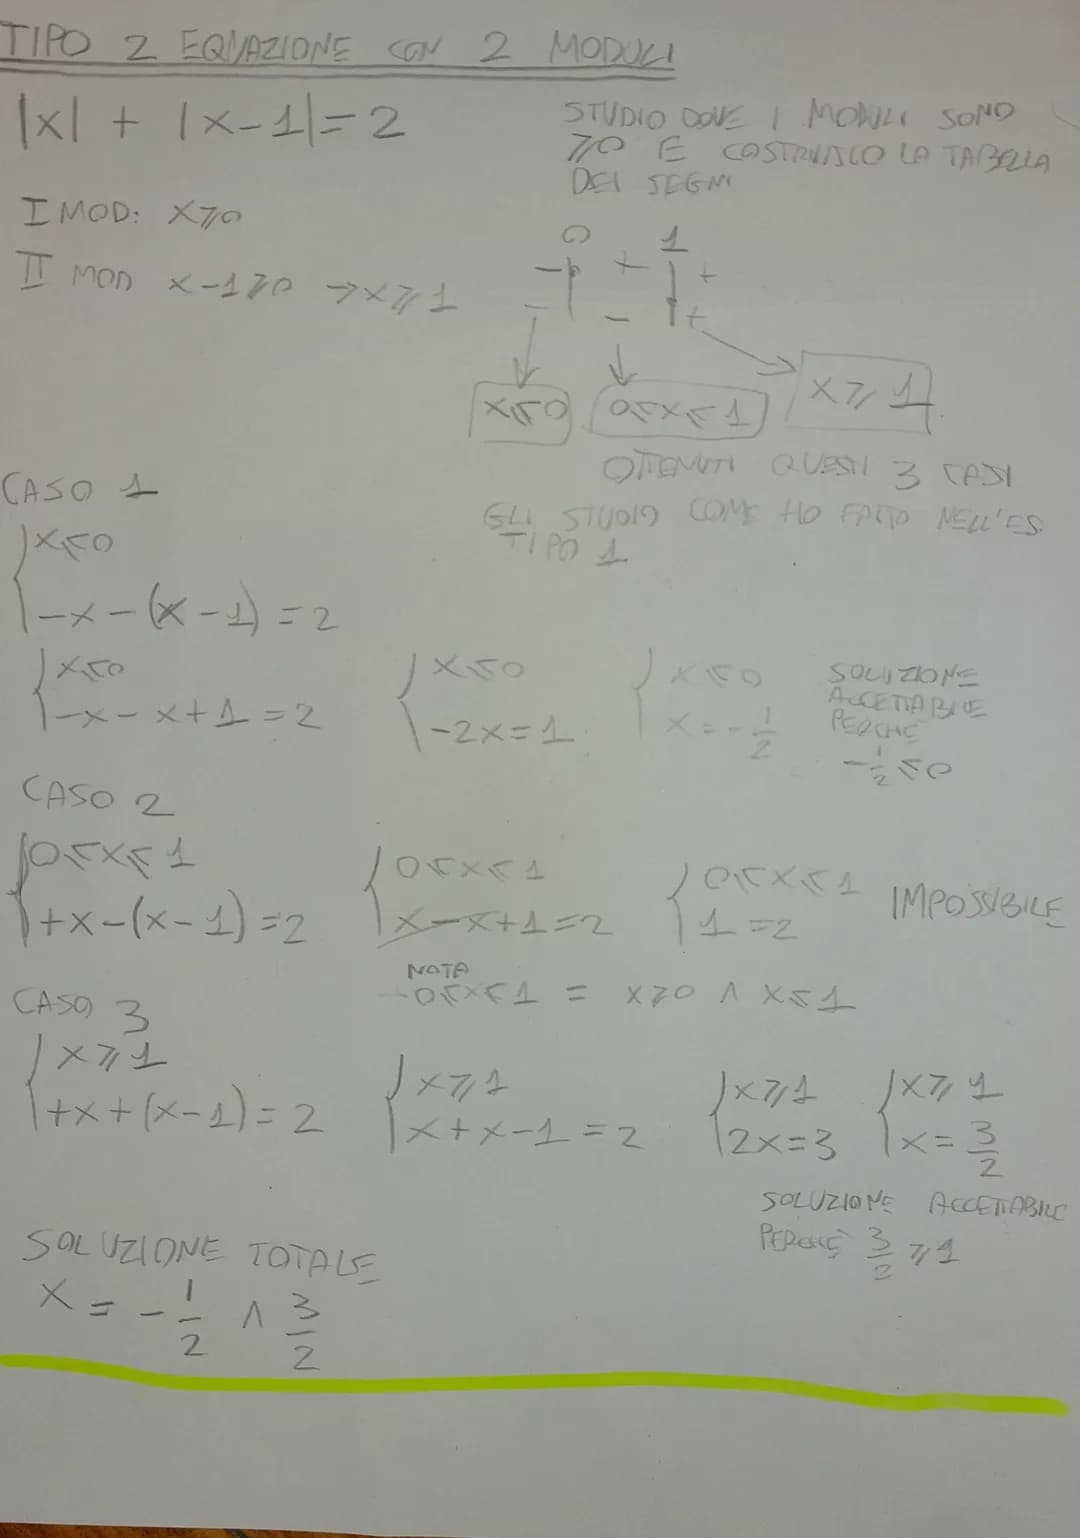 TIPO 2 EQUAZIONE CON 2 MODULI
|x| + |x-1|=2
STUDIO DOVE I MODULI SONO
≥0 E COSTRUISCO LA TABELLA
DEI SEGNI
I MOD: X≥0
II MOD X-1≥0 →X≥1
0 1
- + +
- - +
X≤0 0≤X≤1 X≥1
OTTENUTI QUESTI 3 CASI
GLI STUDIO COME HO FATTO NELL'ES.
TIPO 1
CASO 1
{X≤0
{-X-(X-1)=2
{X≤0 {X≤0 {X≤0
{-X-X+1=2 {-2X=1 {X=-1/2
SOLUZIONE
ACCETTABILE
PERCHÈ
-1/2≤0
CASO 2
{0≤X≤1 {0≤X≤1 {0≤X≤1
{+X-(X-1)=2 {X-X+1=2 {1=2
IMPOSSIBILE
NOTA
0≤X≤1 = X≥0 ∧ X≤1
CASO 3
{X≥1 {X≥1 {X≥1 {X≥1
{+X+(X-1)=2 {X+X-1=2 {2X=3 {X=3/2
SOLUZIONE ACCETTABILE
PERCHÈ 3/2 ≥1
SOLUZIONE TOTALE
X = -1/2 ∧ 3/2